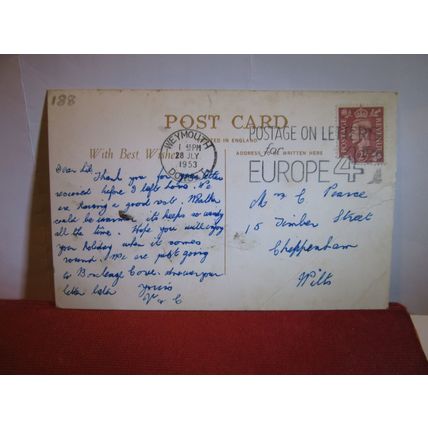 188
POST CARD
PRINTED IN ENGLAND
With Best Wishes
ADDRESS TO BE WRITTEN HERE
WEYMOUTH
1 PM
28 JLY
1953
DORSET
POSTAGE ON LETTERS
for
EUROPE 4D
POSTAGE REVENUE
Dear
Thank you for your letter
received before I left home. We
are having a good rest. Weather
could be warmer. its so windy
all the time. Hope you will enjoy
you holiday when it comes
round. We are just going
to Cove. answer your
letter later yours
V C
Mrs C Pearce
15 Timber Street
Chippenham
Wilts